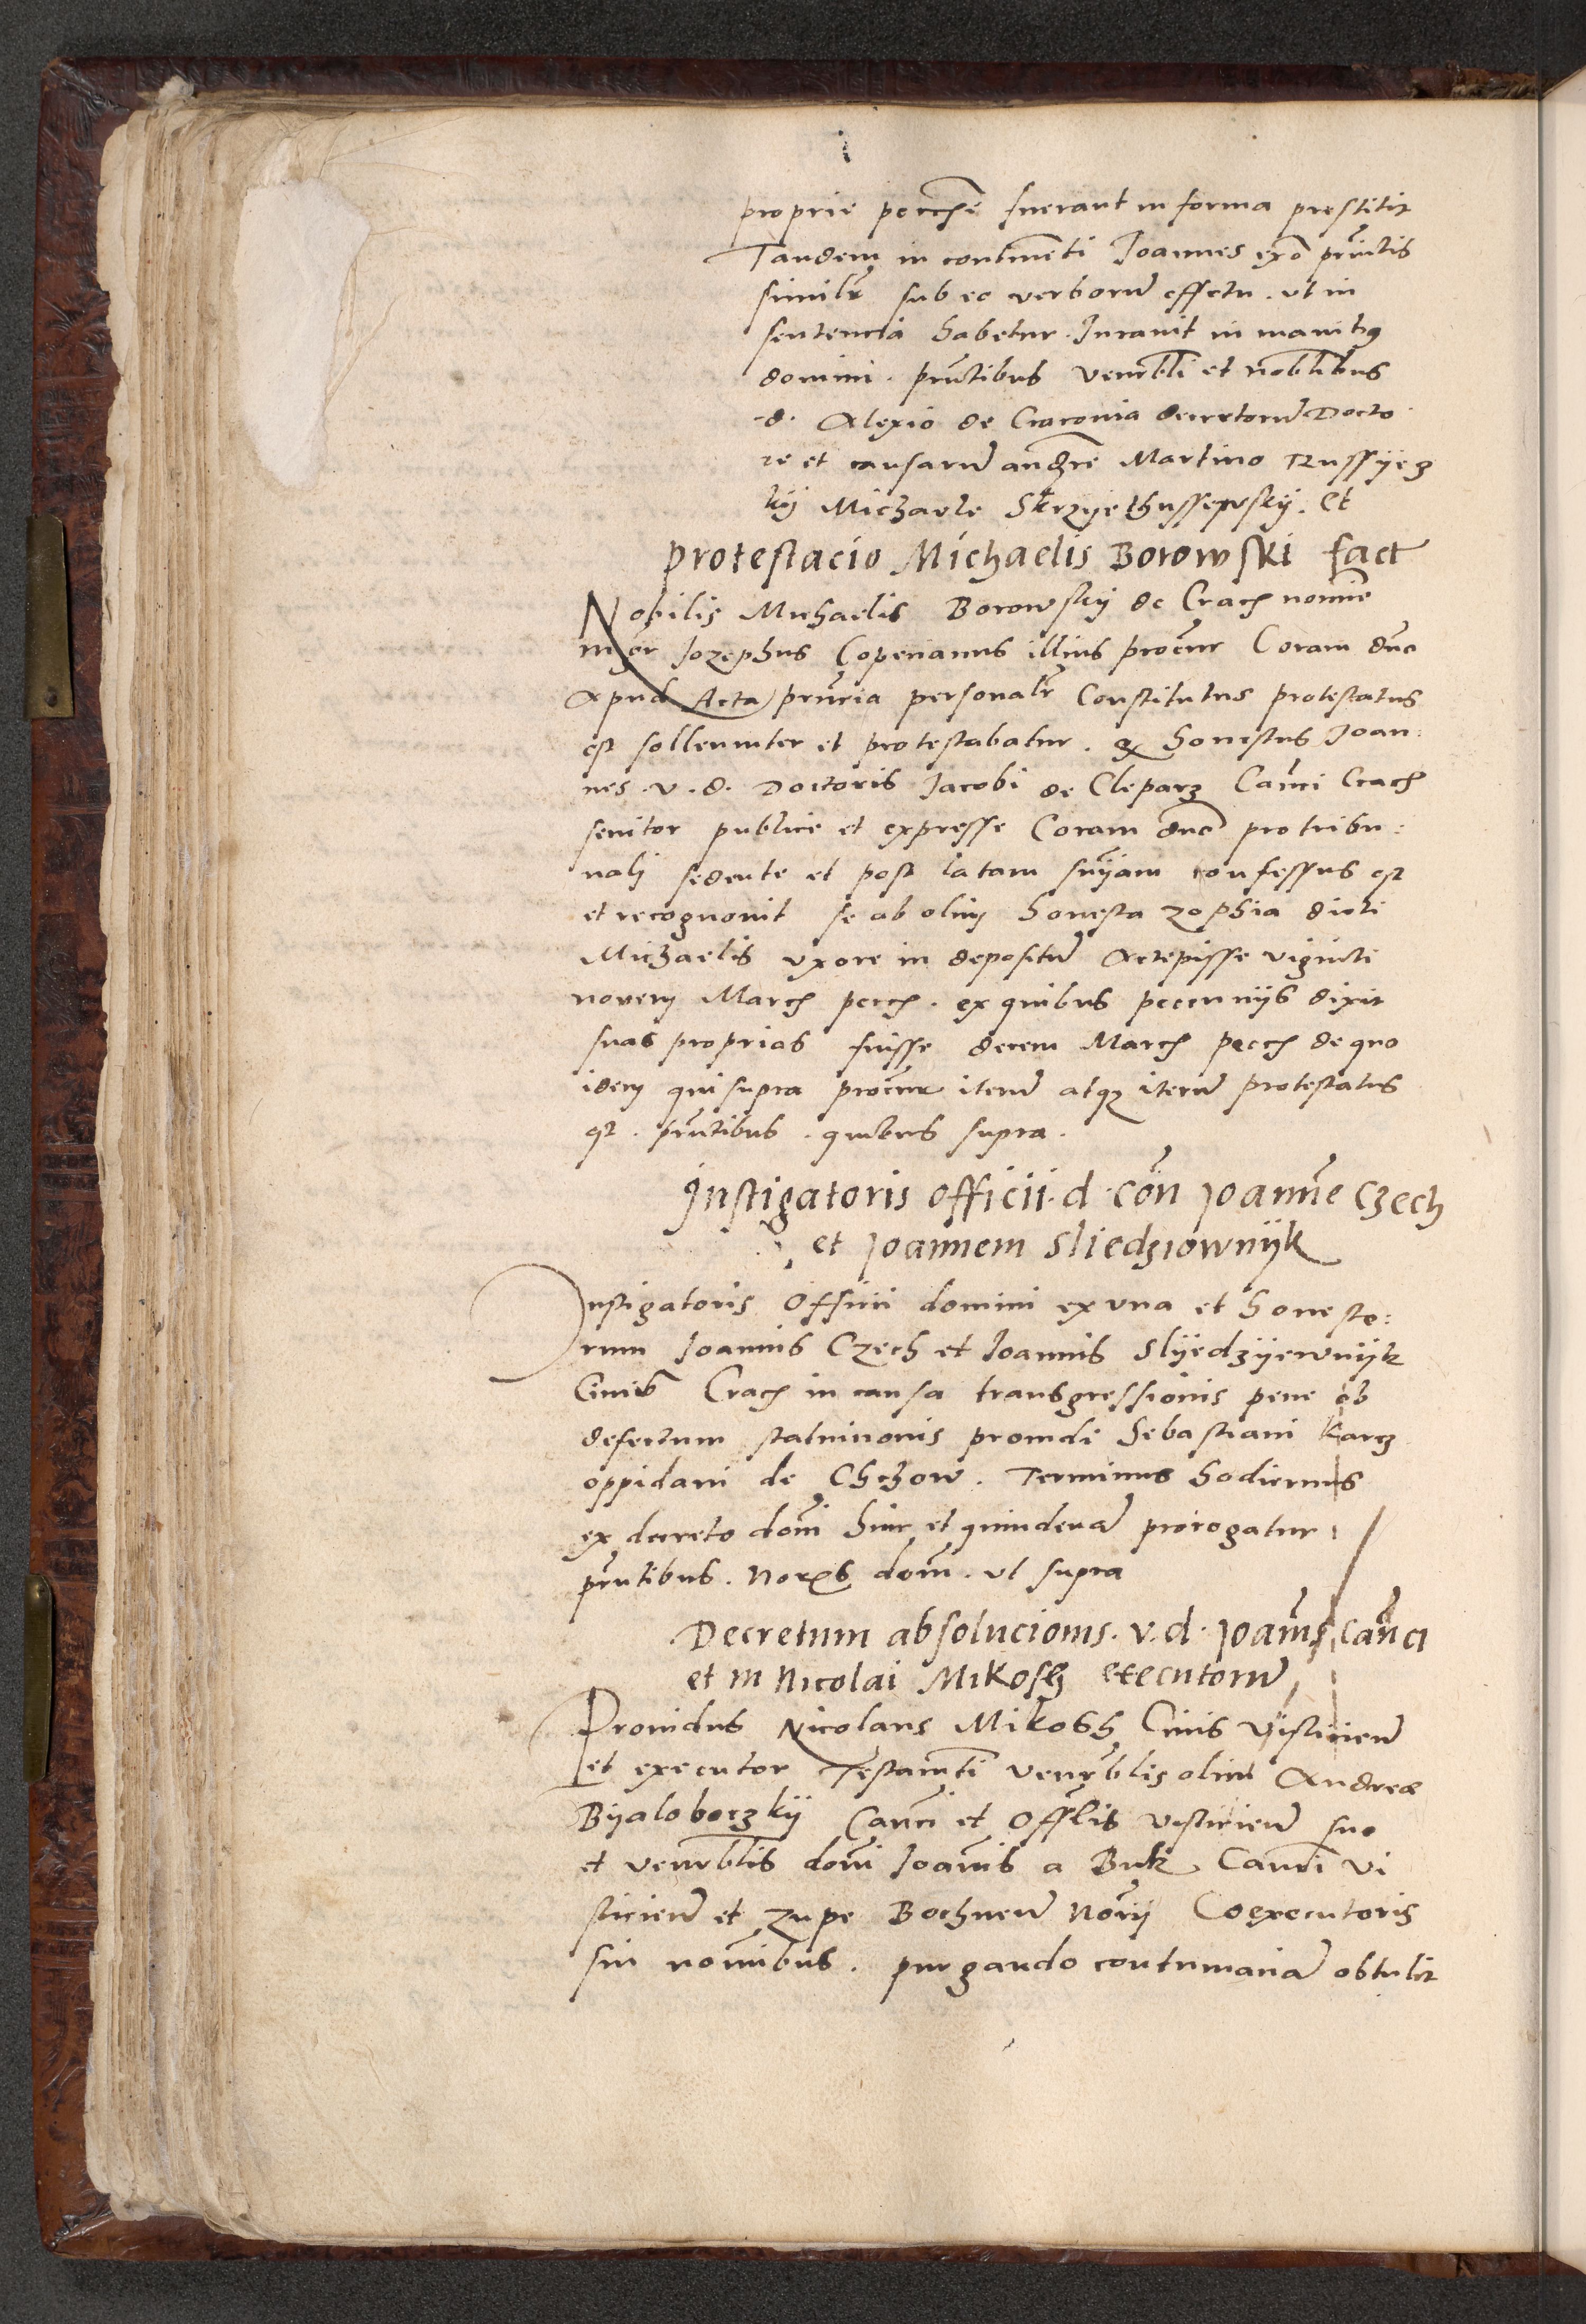 proprie pecche fuerant in forma prestitit
Tandem in continēti Joannes exō prn̄tis
similr̄ sub eo verborū effctu . ut in
sentencia habetur . Juravit in manibq
domini . prn̄tibus venrbli et noblibus
d. Alexio de Cracovia decretorū Docto
re et causarū Martino
kij Michaele Skrzyethussewskij . Et
Protestacio Michaelis Borowski fact
Nobilis Michaelis Borowskij de Crach nomīe
mgr Jozephus Copenanus illius procur Coram dno
Apud Acta prn̄cia personalr̄ Constitutus protestatus
est sollenniter et protestabatur . q̄ honestus Joan:
nes . v . d . Doctoris Jacobi de Cleparz Canci Crach
servitor publice et expresse Coram dno pro tribu:
nalj sedente et post latam sn̄iam confessus est
et recognovit se ab olim honesta zophia dicti
Michaelis uxore in depositū Accepisse viginti
novem March pecch . ex quibus peccuniis dixit
suas proprias fuisse decem March pecch de quo
idem qui supra procur iterū atqz iterū protestatus
est . prn̄tibus . quibus supra .
Instigatoris officii . d . con̄ Joanne Czech
et Joannem Sliedziownijk
Instigatoris Officii domini ex una et honesto:
rum Joannis Czech et Joannis Slijedzijewnijk
Civiū Crach in causa transgressionis pene ob
defectum statuicionis providi Sebastiani Karcz
oppidani de Chczow . Terminus hodiernus
ex decreto domī hinc et quindenā prorogatur
prn̄tibus . domī . ut supra
Decretum absolucionis . v . d . Joannis Canci
et m Nicolai Mikosch executorū
Providus Nicolaus Mikosch Civis Visliciens
et executor Testamti venrblis olim Andree
Bijaloboczkij Canci et Offlis visliciens suo
et venrblis domī Joannis a Buk Canci Vi
sliciens et zupe Bochnens Norij Coexecutoris
sui nomībus . purgando contumaciā obtulit